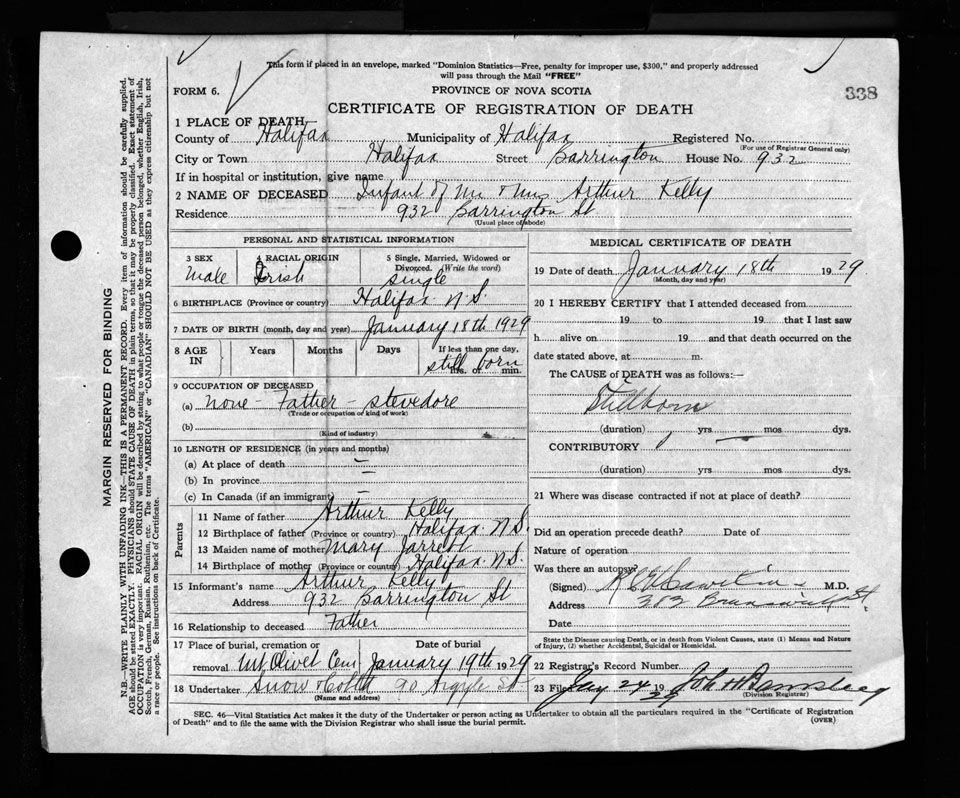 This form if placed in an envelope, marked "Dominion Statistics—Free, penalty for improper use, $300," and properly addressed
will pass through the Mail "FREE"
FORM 6.
PROVINCE OF NOVA SCOTIA
338
CERTIFICATE OF REGISTRATION OF DEATH
1 PLACE OF DEATH,
County of Halifax Municipality of Halifax Registered No.
(For use of Registrar General only)
City or Town Halifax Street Barrington House No. 932
If in hospital or institution, give name
2 NAME OF DECEASED Infant of Mr & Mrs Arthur Kelly
Residence 932 Barrington St
(Usual place of abode)
PERSONAL AND STATISTICAL INFORMATION
3 SEX 4 RACIAL ORIGIN 5 Single, Married, Widowed or
Divorced. (Write the word)
Male Irish single
6 BIRTHPLACE (Province or country) Halifax N.S.
7 DATE OF BIRTH (month, day and year) January 18th 1929
8 AGE IN Years Months Days If less than one day,
still born
hrs. or min.
9 OCCUPATION OF DECEASED
(a) none - Father - stevedore
(Trade or occupation or kind of work)
(b)
(Kind of industry)
10 LENGTH OF RESIDENCE (in years and months)
(a) At place of death —
(b) In province —
(c) In Canada (if an immigrant) —
Parents
11 Name of father Arthur Kelly
12 Birthplace of father (Province or country) Halifax N.S.
13 Maiden name of mother Mary Jarrett
14 Birthplace of mother (Province or country) Halifax N.S.
15 Informant's name Arthur Kelly
Address 932 Barrington St
16 Relationship to deceased Father
17 Place of burial, cremation or Date of burial
removal Mt Olivet Cem January 19th 1929
18 Undertaker Snow & Co Ltd 90 Argyle St
(Name and address)
MEDICAL CERTIFICATE OF DEATH
19 Date of death January 18th 1929
(Month, day and year)
20 I HEREBY CERTIFY that I attended deceased from
19 to 19 that I last saw
h alive on 19 and that death occurred on the
date stated above, at m.
The CAUSE of DEATH was as follows:—
Stillborn
(duration) yrs mos dys.
CONTRIBUTORY
(duration) yrs. mos. dys.
21 Where was disease contracted if not at place of death?
Did an operation precede death? Date of
Nature of operation
Was there an autopsy?
(Signed) M.D.
Address 303 Brunswick St.
Date
State the Disease causing Death, or in death from Violent Causes, state (1) Means and Nature
of Injury, (2) whether Accidental, Suicidal or Homicidal.
22 Registrar's Record Number
23 Filed Jay 24 1929 John H
(Division Registrar)
SEC. 46—Vital Statistics Act makes it the duty of the Undertaker or person acting as Undertaker to obtain all the particulars required in the "Certificate of Registration
of Death" and to file the same with the Division Registrar who shall issue the burial permit. (OVER)
MARGIN RESERVED FOR BINDING
N.B.—WRITE PLAINLY WITH UNFADING INK—THIS IS A PERMANENT RECORD. Every item of information should be carefully supplied.
AGE should be stated EXACTLY. PHYSICIANS should STATE CAUSE OF DEATH in plain terms, so that it may be properly classified. Exact statement of
OCCUPATION is very important. RACIAL ORIGIN will be described by stating to what people or tongue the deceased person belonged, whether English, Irish,
Scotch, French, German, Russian, Ruthenian, etc. The terms "AMERICAN" or "CANADIAN" SHOULD NOT BE USED as they express citizenship but not
a race or people. See instructions on back of Certificate.